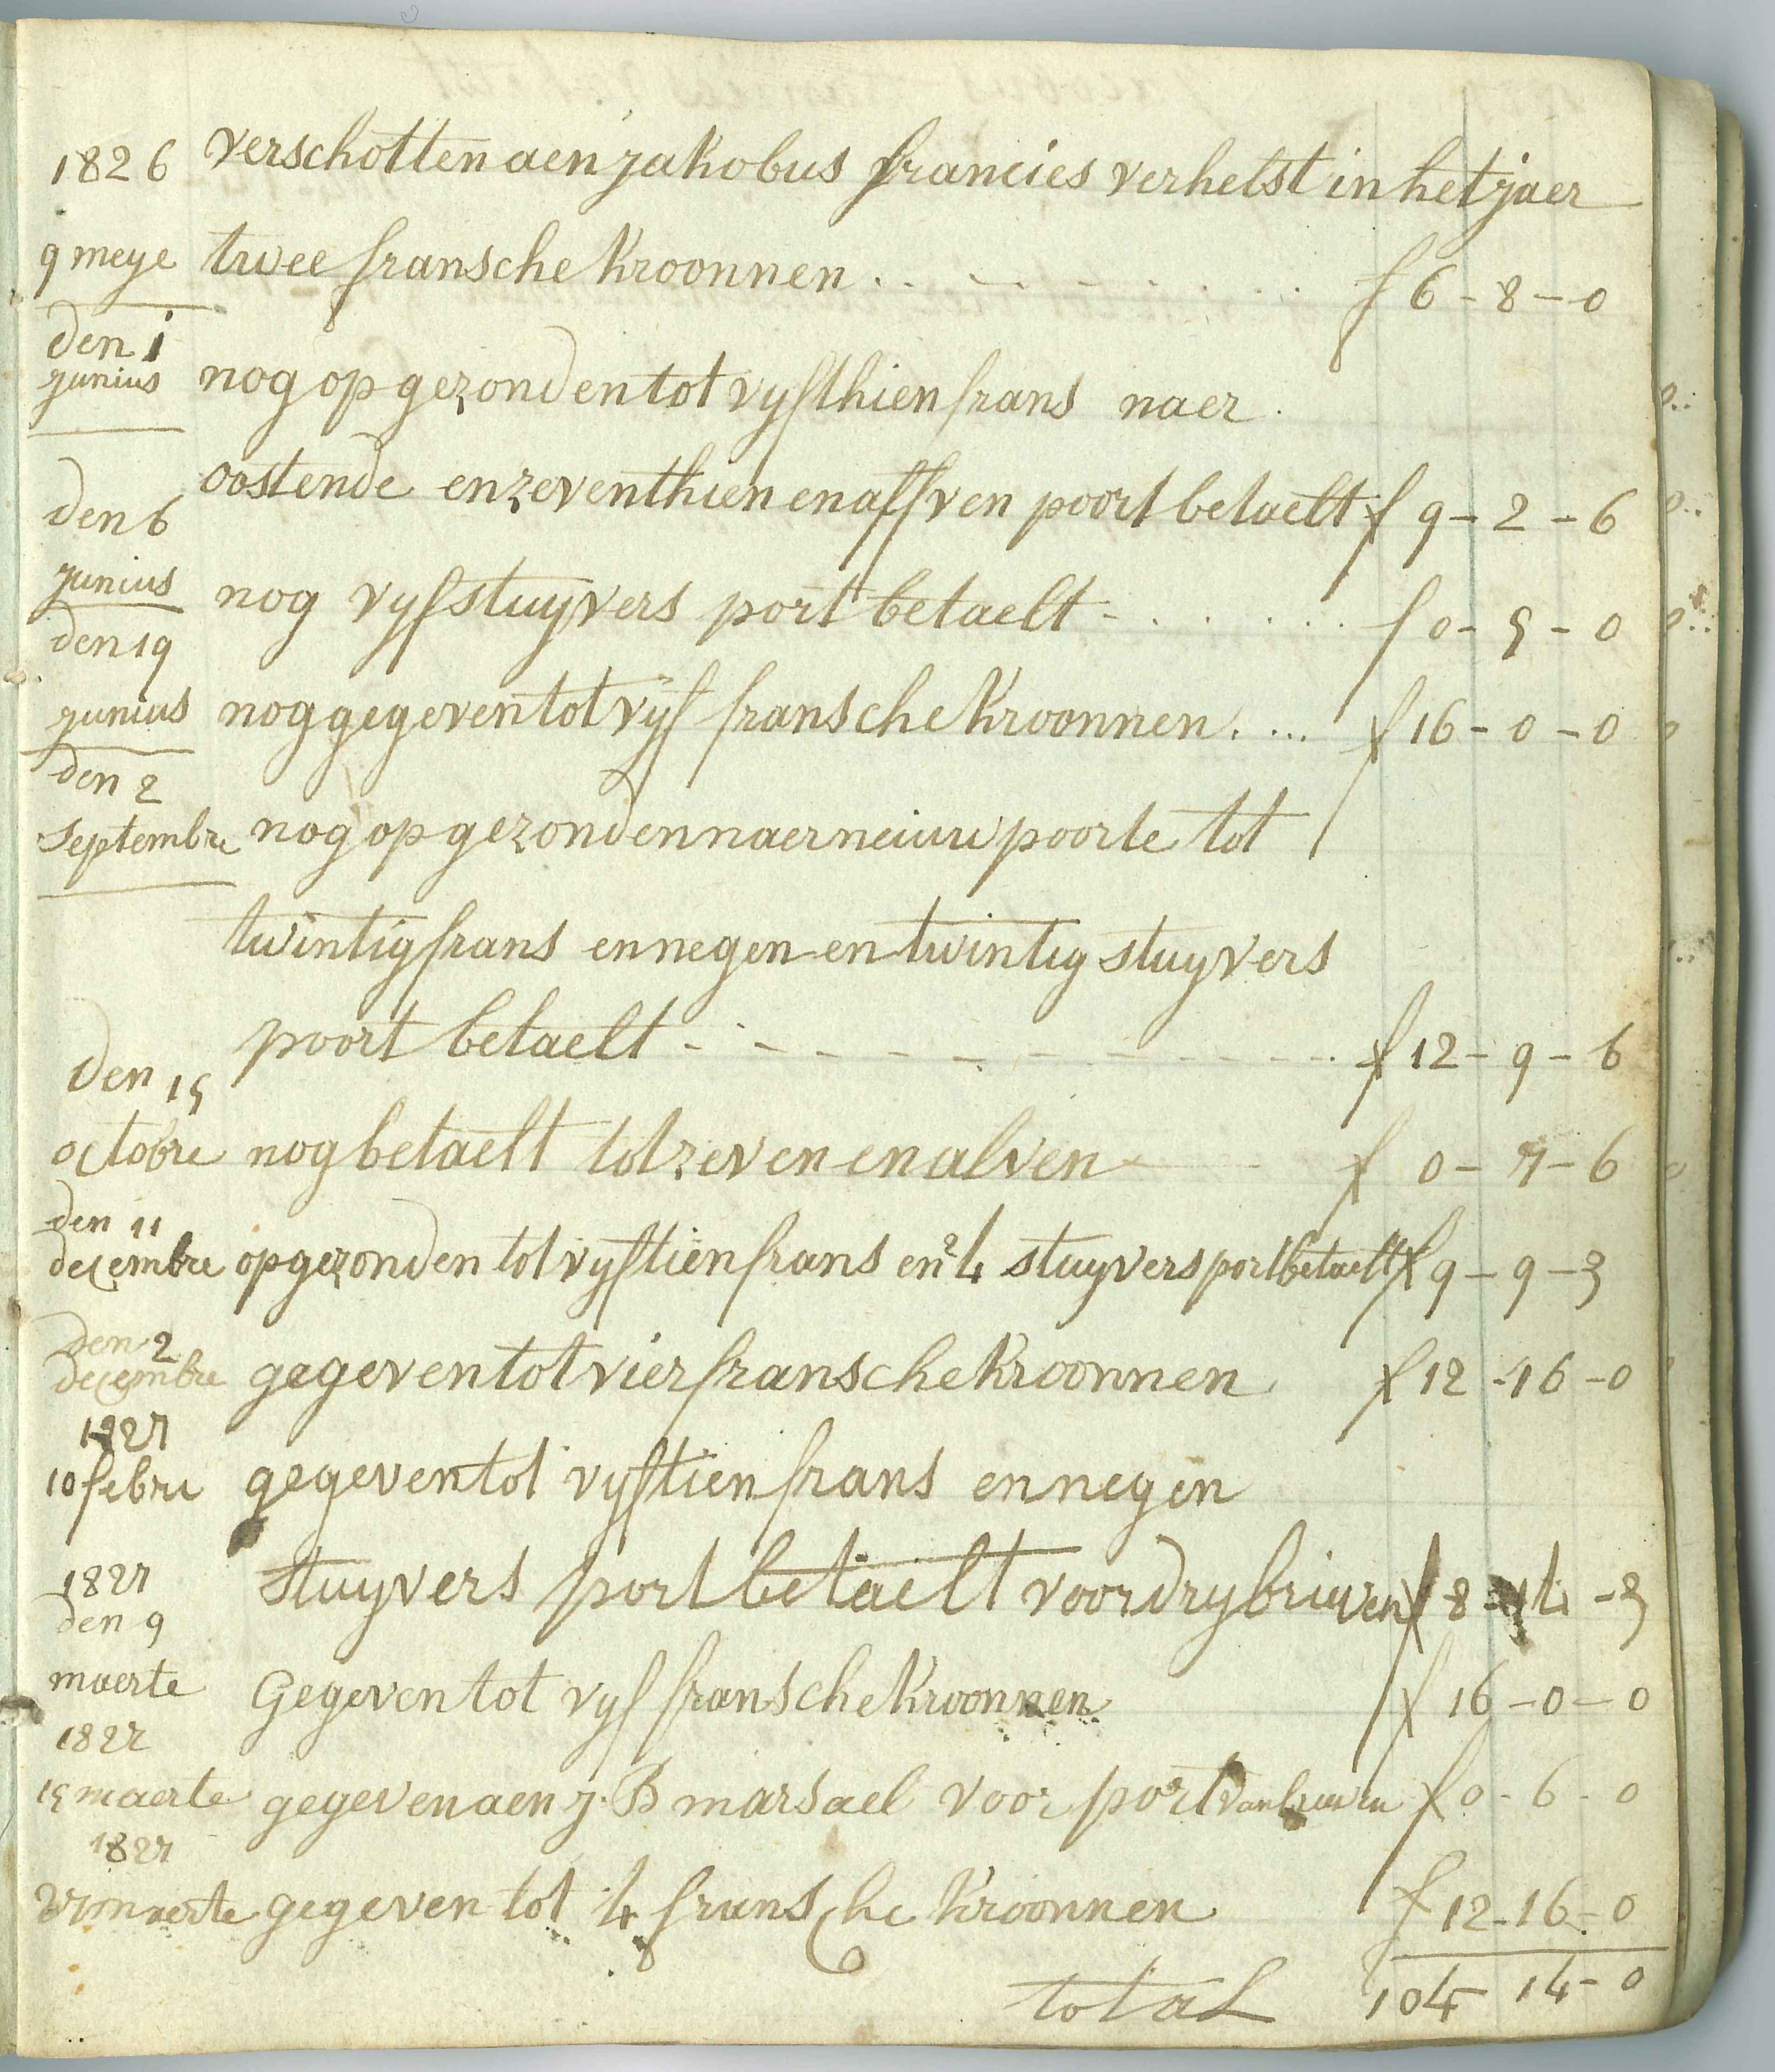 1826 verschotten aen jakobus francies verhelst in het jaer
9 meye twee fransche kroonnen . . - . - . - . . . f 6 - 8 - 0
den 1
junius nog op gezonden tot vyfthien frans naer .
oostende en zeventhien en alfven poort betaelt f 9 - 2 - 6
den 6
junius nog vyf stuyvers port betaelt - . . . . . . f 0 - 5 - 0
den 19
junius nog gegeven tot vyf fransche kroonnen . ... f 16 - 0 - 0
den 2
septembre nog op gezonden naer neiuwpoorte tot
twintig frans en negen en twintig stuyvers
poort betaelt - - - - - - - - - - - . f 12 - 9 - 6
den 15
octobre nog betaelt tot zeven en alven - - f 0 - 7 - 6
den 11
decembre opgezonden tot vyftien frans en 24 stuyvers port betaelt f 9 - 9 - 3
den 2
decembre gegeven tot vier fransche kroonnen f 12 - 16 - 0
1827
10 febre gegeven tot vyftien frans en negen
stuyvers port betaelt voor dry brieven f 8 - 14 - 3
1827
den 9
maerte Gegeven tot vyf fransche kroonnen f 16 - 0 - 0
1827
15 maerte gegeven aen j. B marsael voor port van f 0 - 6 - 0
1827
maerte gegeven tot 4 fransche kroonnen f 12 - 16 - 0
total 104 - 14 - 0